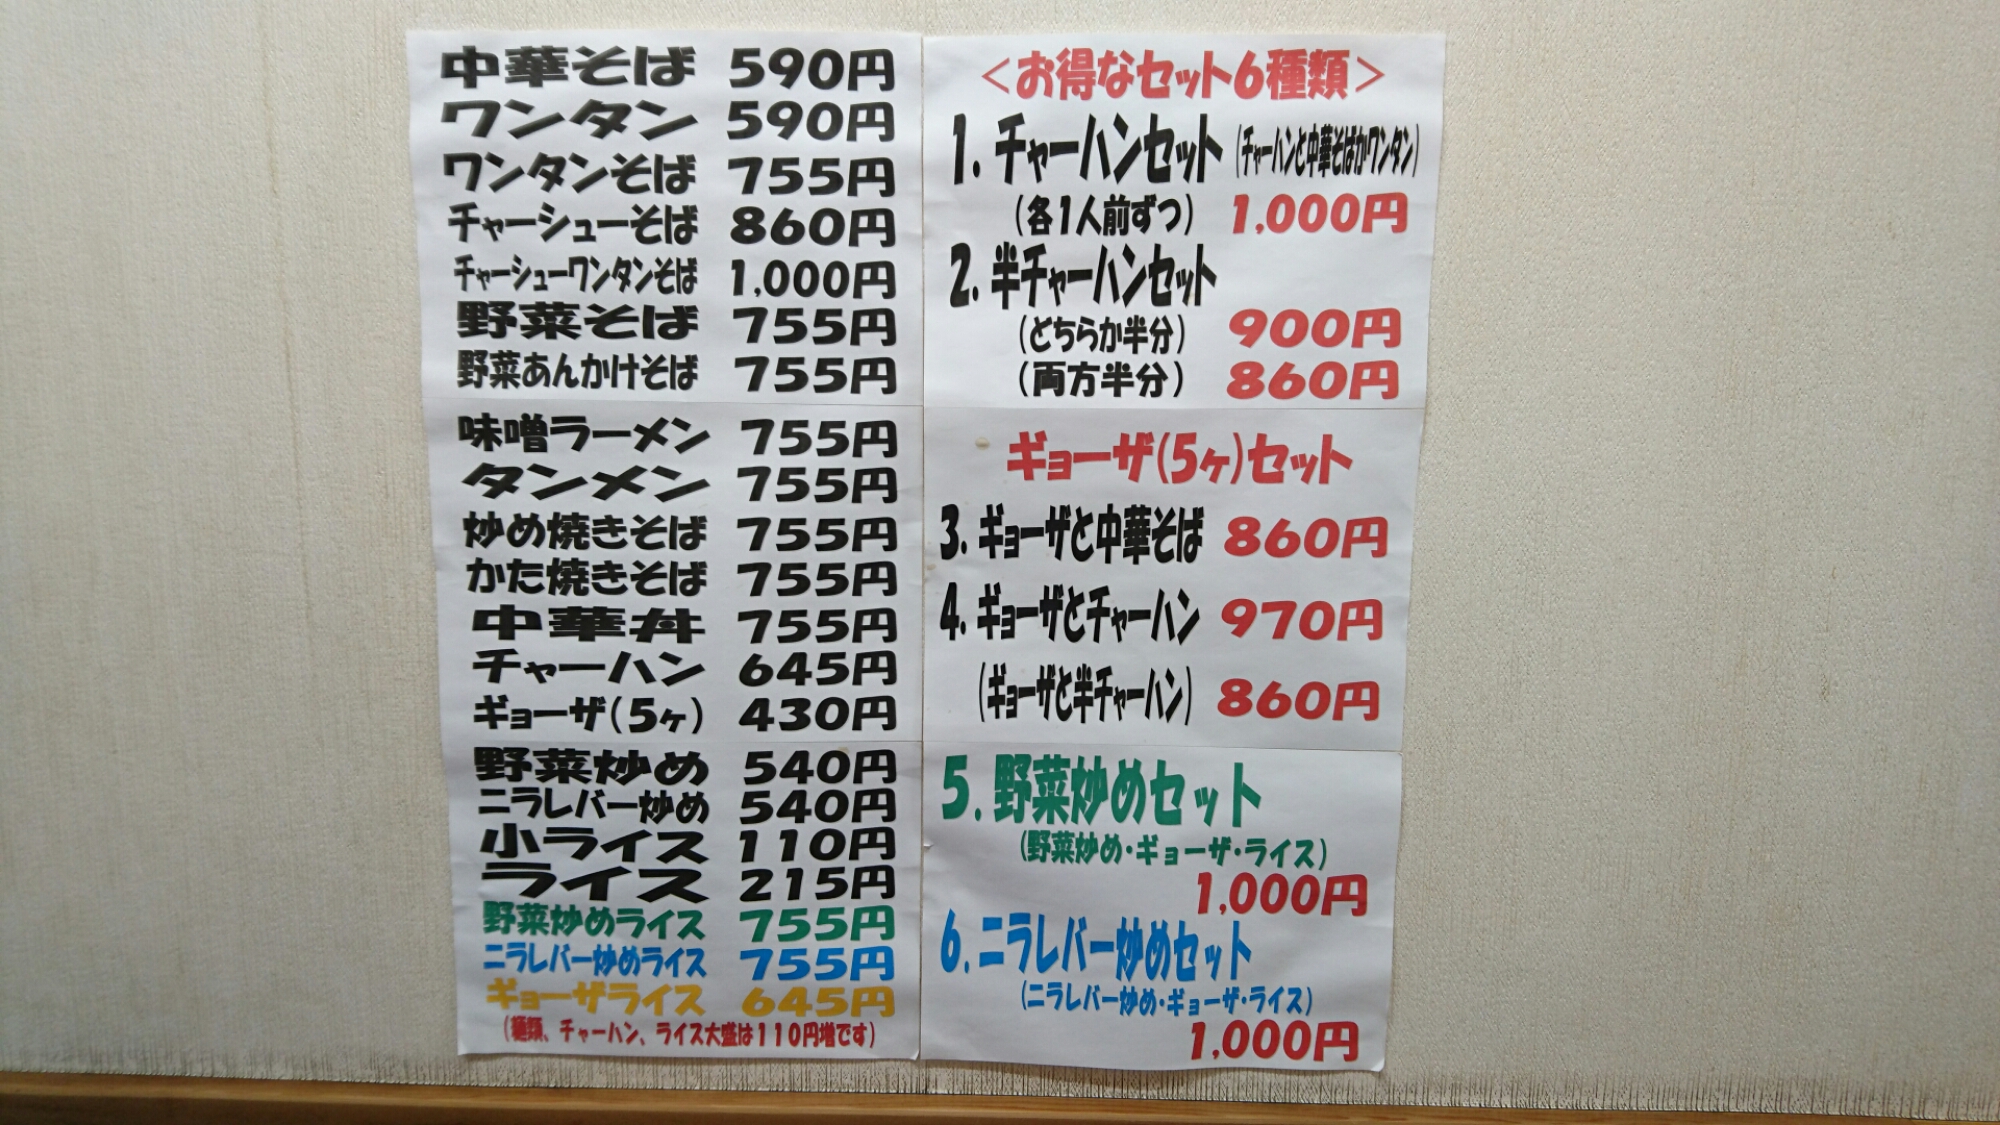 中華そば 590円
ワンタン 590円
ワンタンそば 755円
チャーシューそば 860円
チャーシューワンタンそば 1,000円
野菜そば 755円
野菜あんかけそば 755円
味噌ラーメン 755円
タンメン 755円
炒め焼きそば 755円
かた焼きそば 755円
中華丼 755円
チャーハン 645円
ギョーザ(5ヶ) 430円
野菜炒め 540円
ニラレバー炒め 540円
小ライス 110円
ライス 215円
野菜炒めライス 755円
ニラレバー炒めライス 755円
ギョーザライス 645円
(麺類、チャーハン、ライス大盛は110円増です)
<お得なセット6種類>
1.チャーハンセット (チャーハンと中華そばかワンタン)
(各1人前ずつ) 1,000円
2.半チャーハンセット
(どちらか半分) 900円
(両方半分) 860円
ギョーザ(5ヶ)セット
3.ギョーザと中華そば 860円
4.ギョーザとチャーハン 970円
(ギョーザと半チャーハン) 860円
5.野菜炒めセット
(野菜炒め・ギョーザ・ライス)
1,000円
6.ニラレバー炒めセット
(ニラレバー炒め・ギョーザ・ライス)
1,000円